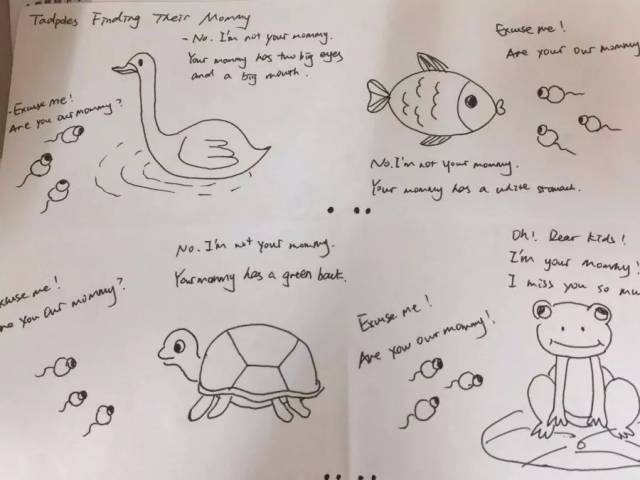 Tadpoles Finding Their Mommy
- No. I'm not your mommy.
Your mommy has two big eyes
and a big mouth.
- Excuse me!
Are you our mommy?
Excuse me!
Are your our mommy
No. I'm not your mommy.
Your mommy has a white stomach.
No. I'm not your mommy.
Your mommy has a green back.
xcuse me!
you our mommy?
Oh! Dear kids!
I'm your mommy!
I miss you so mu
Excuse me!
Are you our mommy!